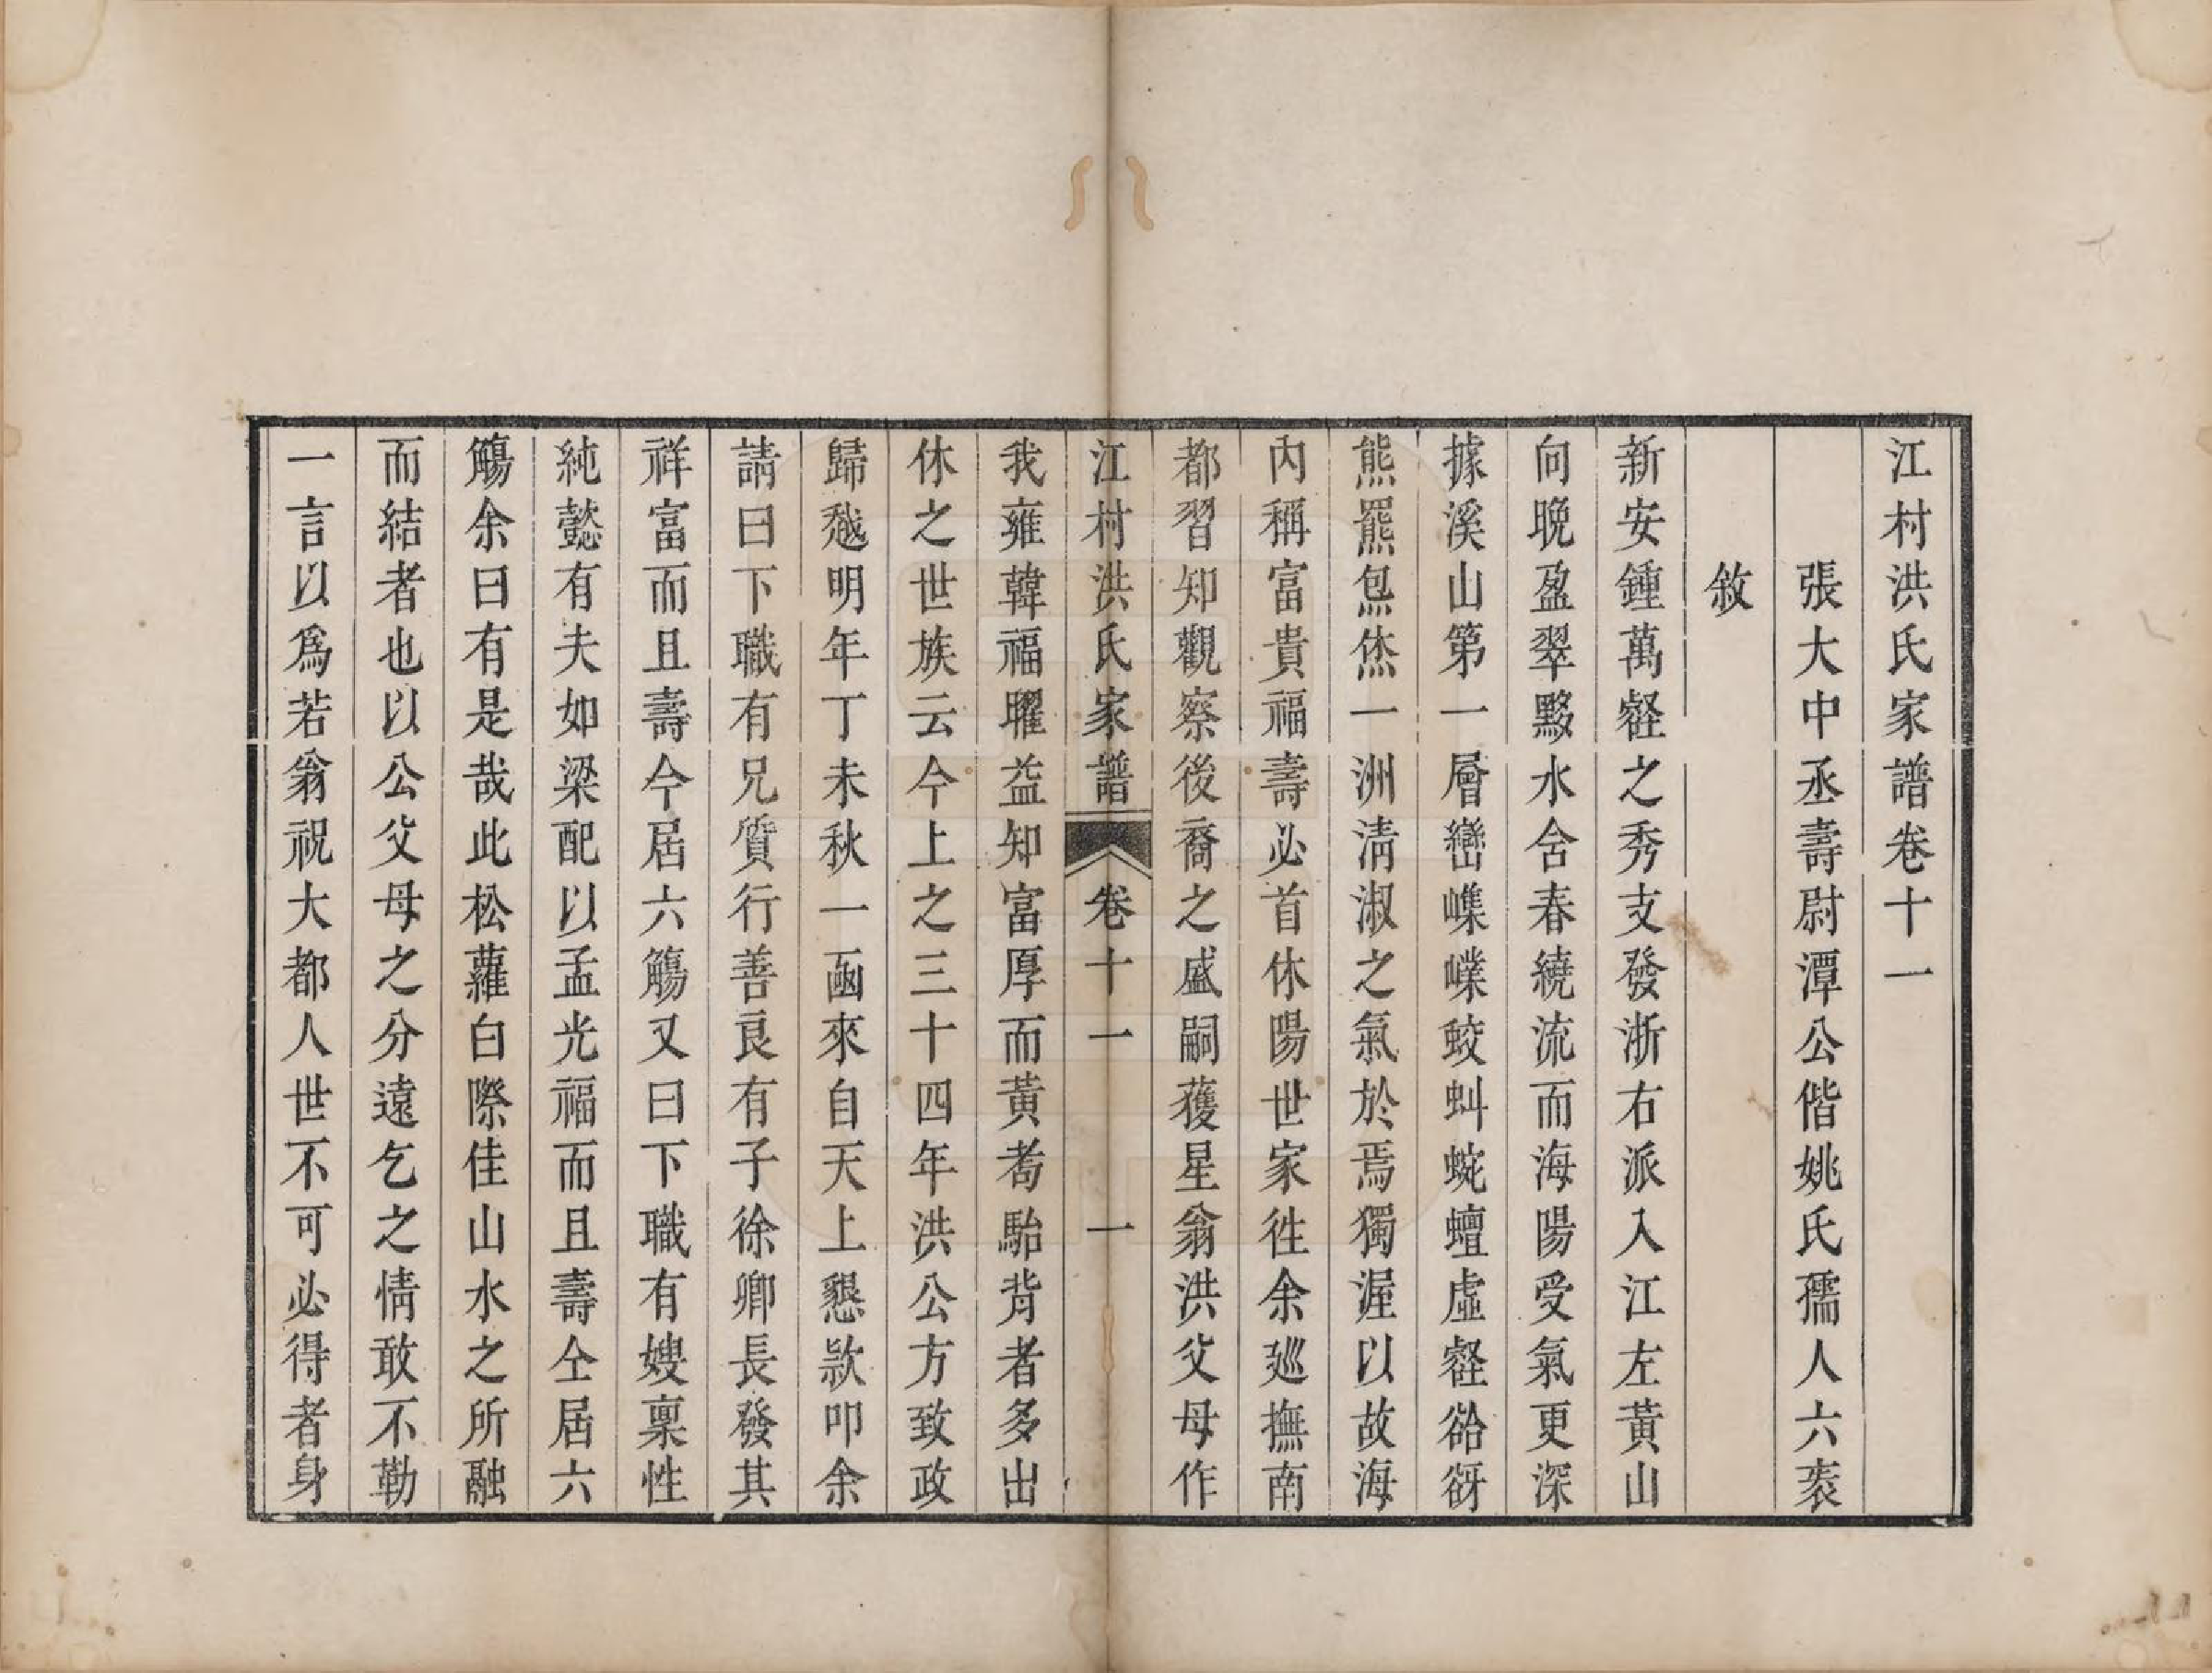 江村洪氏家譜卷十一
張大中丞壽尉潭公偕姚氏孺人六袠
敘
新安鍾萬壑之秀支發浙右派入江左黃山
向晚盈翠黟水含春繞流而海陽受氣更深
據溪山第一層巒巢嶫蛟虯蜿蟺虛壑谽谺
熊羆炰烋一洲淸淑之氣於焉獨渥以故海
內稱富貴福壽必首休陽世家徃余廵撫南
都習知觀察後裔之盛嗣獲星翁洪父母作
江村洪氏家譜 卷十一 一
我雍韓福曜益知富厚而黃耇駘背者多出
休之世族云今上之三十四年洪公方致政
歸越明年丁未秋一函來自天上懇欵叩余
請曰下職有兄質行善良有子徐卿長發其
祥富而且壽今居六觴又曰下職有嫂稟性
純懿有夫如梁配以孟光福而且壽仝居六
觴余曰有是哉此松蘿白際佳山水之所融
而結者也以公父母之分遠乞之情敢不勒
一言以爲若翁祝大都人世不可必得者身